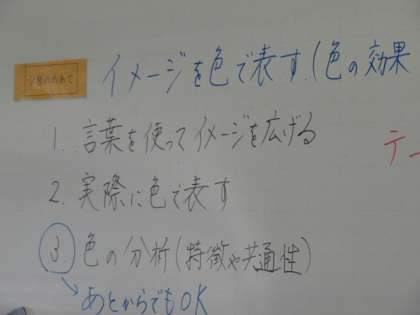 イメージを色で表す.(色の効果
1. 言葉を使ってイメージを広げる
テー
2. 実際に色で表す
3. 色の分析(特徴や共通性)
あとからでもOK